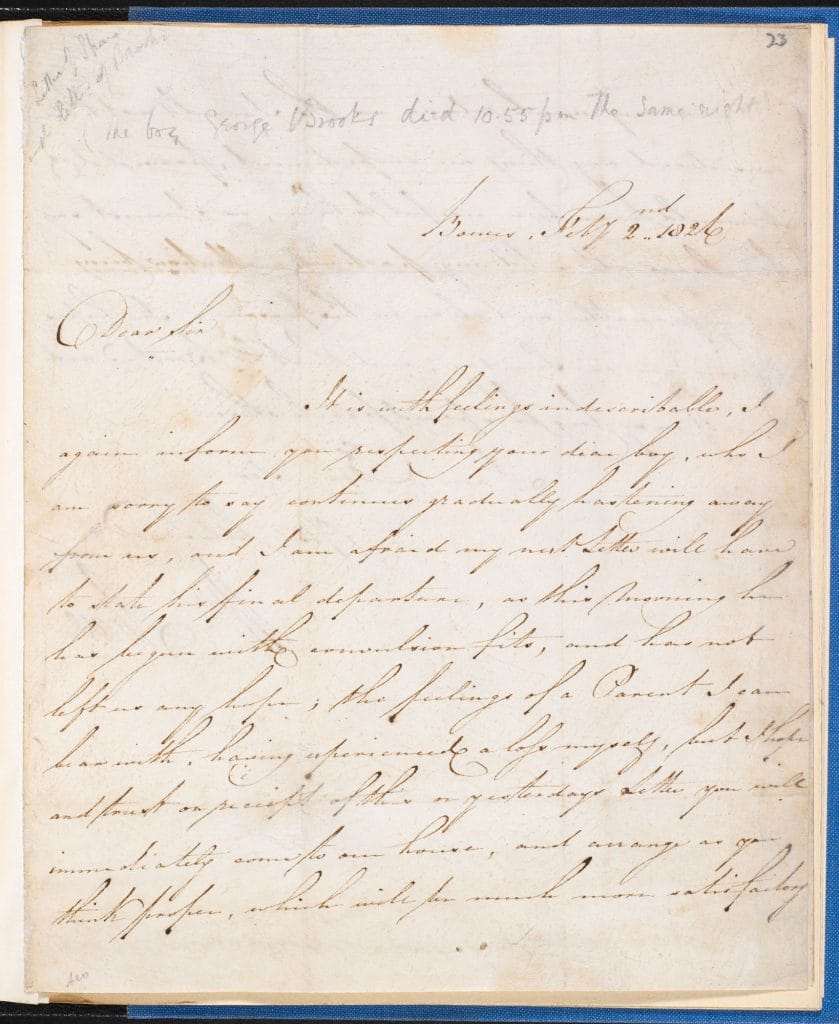 23
Letter of Shaw
Letter of Brooks
(The boy George Brooks died 10.55 pm the same night
Bowes, Feby 2nd 1826
Dear Sir
It is with feelings indescribable, I
again inform you respecting your dear boy, who I
am sorry to say continues gradually hastening away
from us, and I am afraid my next Letter will have
to state his final departure, as this Morning he
has begun with convulsion fits, and has not
left us any hope; the feelings of a Parent I can
bear with, having experienced a loss myself, but I hope
and trust on receipt of this or yesterdays Letter you will
immediately come to our house, and arrange as you
think proper, which will be much more satisfactory